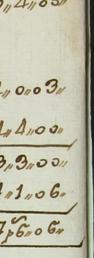 „4„03„
„0„03„
4„4„00„
3„3„00„
1„1„06„
7„6„06„